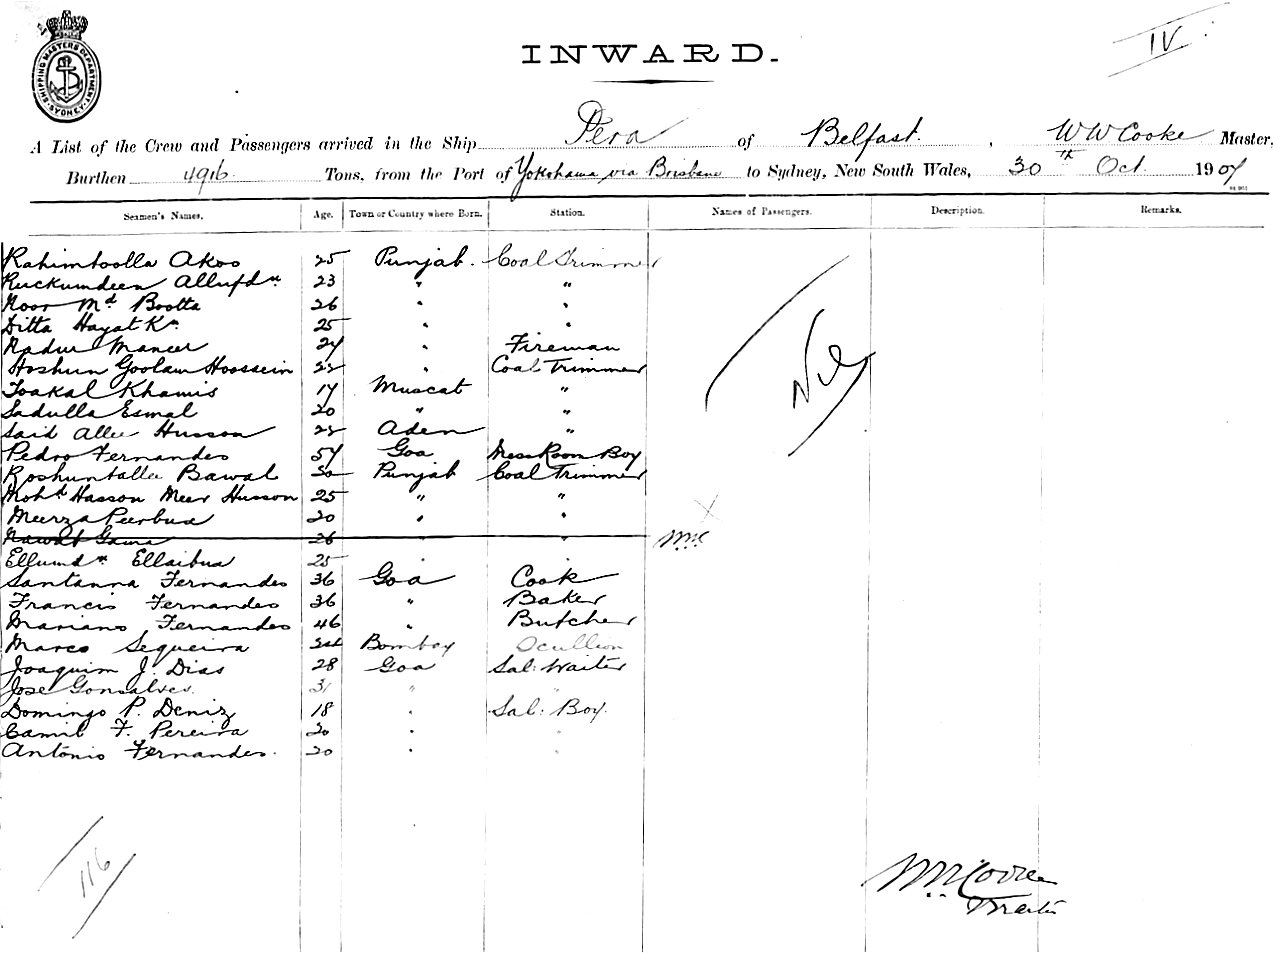 SHIPPING MASTERS DEPARTMENT SYDNEY
INWARD.
IV
A List of the Crew and Passengers arrived in the Ship Pera of Belfast. , W W Cooke Master,
Burthen 4916 Tons, from the Port of Yokohama via Brisbane to Sydney, New South Wales, 30th Oct. 1907
Seamen's Names. Age. Town or Country where Born. Station. Names of Passengers. Description. Remarks.
Rahimtoolla Akoo 25 Punjab. Coal Trimmer
Ruckumdeen Allufdn 23 " "
Noor Md Bootta 26 " "
Ditta Hayat Kn 25 " "
Nadur Mancer 24 " Fireman
Hoshun Goolam Hoossein 22 " Coal Trimmer
Toakal Khamis 17 Muscat "
Sadulla Esmal 20 " "
Said Allee Husson 22 Aden "
Pedro Fernandes 57 Goa Mess Room Boy
Roshuntalla Bawal 30 Punjab Coal Trimmer
Mohd Hasson Meer Husson 25 " "
Meerza Peerbux 20 " "
Nawab Gama 26 " "
Ellumdn Ellaibux 25 " "
Santanna Fernandes 36 Goa Cook
Francis Fernandes 36 " Baker
Mariano Fernandes 46 " Butcher
Marco Sequeira Bombay Scullion
Joaquim J. Dias 28 Goa Sal: Waiter
Jose Gonsalves. 31 " "
Domingo P. Deniz 18 " Sal: Boy.
Camil F. Pereira 20 " "
Antonio Fernandes. 20 " "
Nil
116
WW Cooke
Master